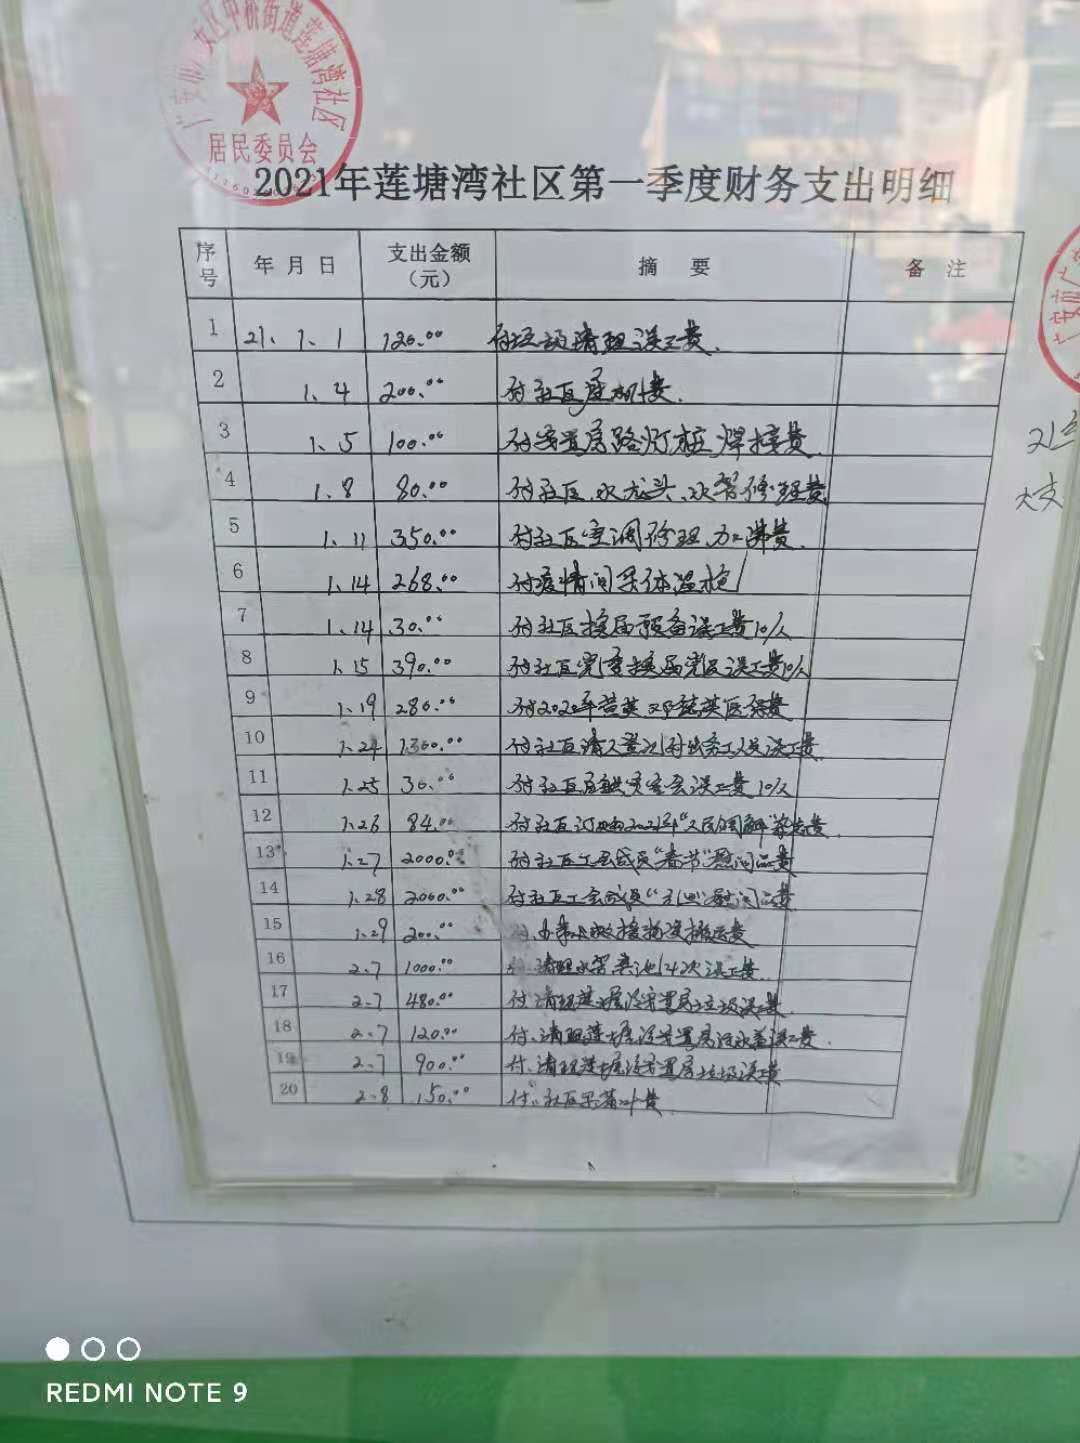 中桥街道莲塘湾社区
居民委员会
2021年莲塘湾社区第一季度财务支出明细
序号 年月日 支出金额（元） 摘要 备注
1 21.1.1 120.00 付垃圾清理误工费.
2 1.4 200.00 付社区座机费.
3 1.5 100.00 付安置房路灯桩焊接费.
4 1.8 80.00 付社区.水龙头.水管修理费
5 1.11 350.00 付社区空调修理.加沸费.
6 1.14 268.00 付疫情间买体温枪
7 1.14 30.00 付社区换届预备误工费10/人
8 1.15 390.00 付社区党委换届党员误工费10/人
9 1.19 280.00 付2020年 医保费
10 1.24 1300.00 付社区请人登记村外务工人员误工费
11 1.25 30.00 付社区居 会误工费10/人
12 1.26 84.00 付社区订 2021年"人民调解"杂志费.
13 1.27 2000.00 付社区工会成员"春节"慰问品费
14 1.28 2000.00 付社区工会成员" "慰问品费
15 1.29 200.00 付. 接物资搬运费
16 2.7 1000.00 付.清理水管粪池 次误工费.
17 2.7 480.00 付.清理莲塘湾安置房垃圾误工费.
18 2.7 120.00 付.清理莲塘湾安置房污水盖误工费.
19 2.7 900.00 付.清理莲塘湾安置房垃圾误工费
20 2.8 150.00 付.社区 费.
REDMI NOTE 9